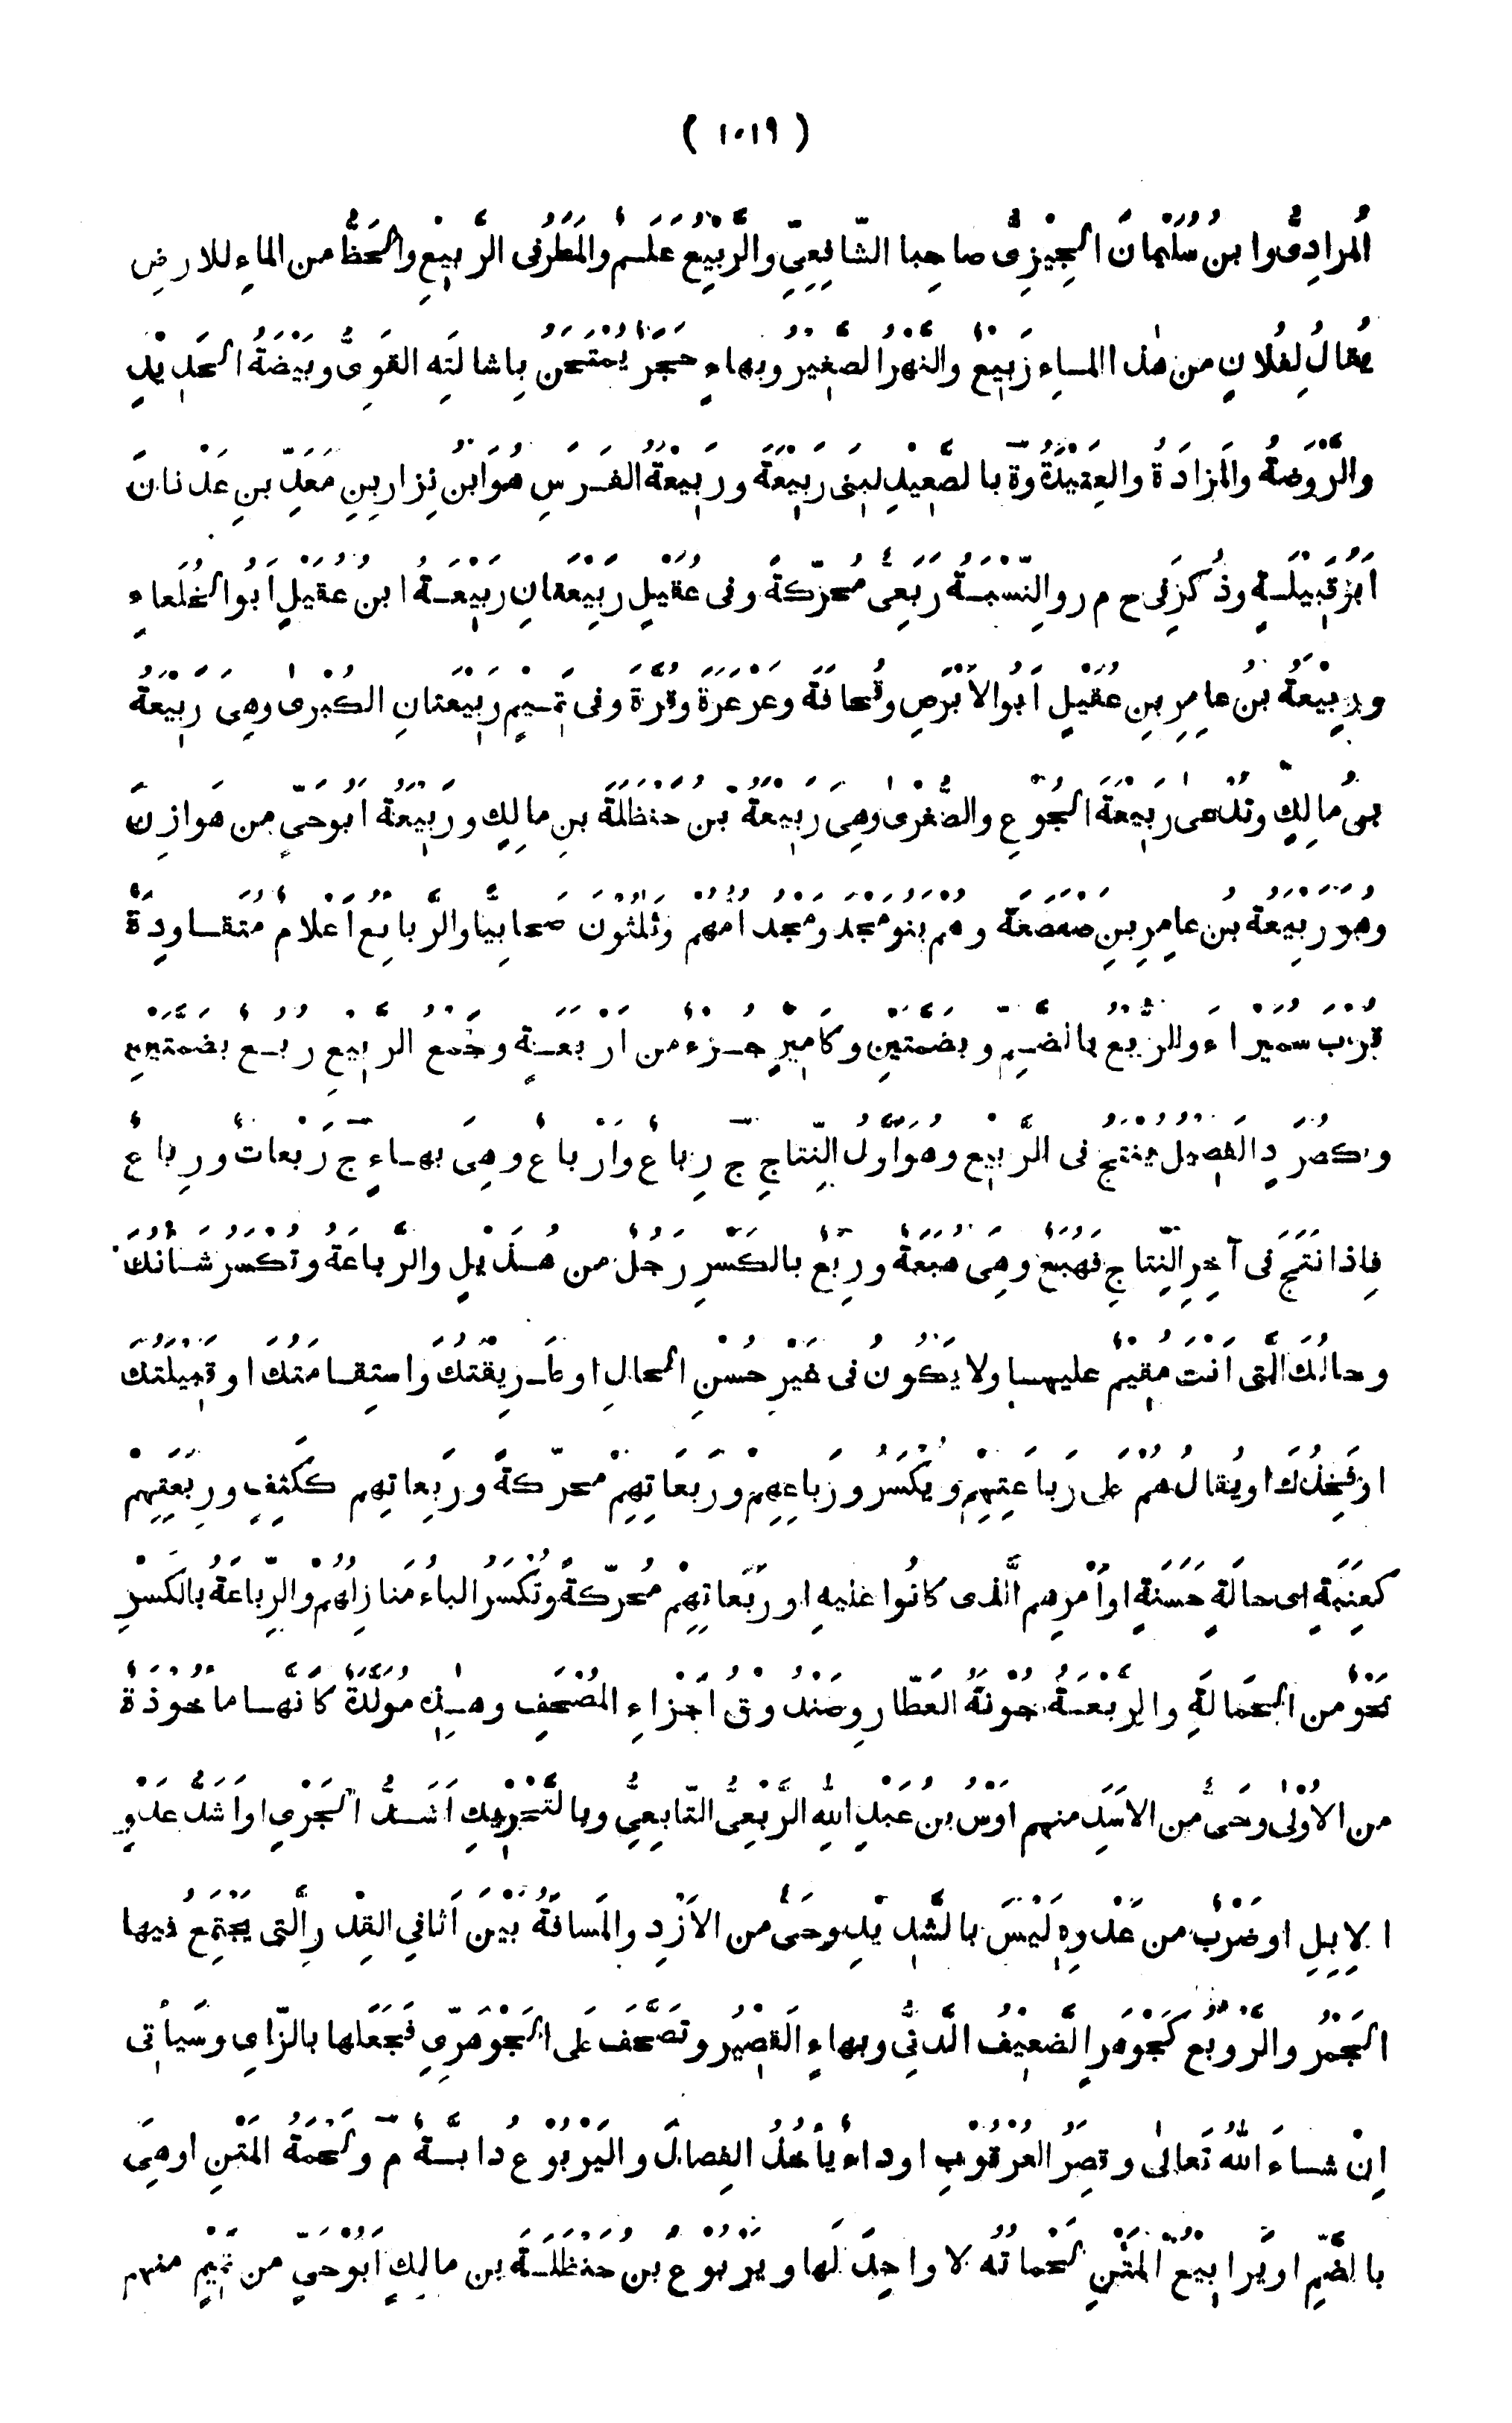 ( ١٠١٩ )
المُرادِىُّ وابنُ سُلَيْمانَ الجِيْزِىُّ صاحِبا الشّافِعِىِّ والرَّبِيْعُ عَلَمٌ والمَطَرُ فى الرَّبِيْعِ والحَظُّ من الماءِ للارضِ
يُقالُ لِفُلانٍ من هٰذا الماءِ رَبِيْعٌ والنَّهْرُ الصَّغِيْرُ وبهاءٍ حَجَرٌ يُمْتَحَنُ بِاشالَتِه القَوِىُّ وبَيْضَةُ الحَدِيْدِ
والرَّوْضَةُ والمَزادَةُ والعَتِيْدَةُ وة بالصَّعِيْدِ لبَنِى رَبِيْعَةَ ورَبِيْعَةُ الفَرَسِ هُوَ ابْنُ نِزارِ بنِ مَعَدِّ بنِ عَدْنانَ
اَبُوْ قَبِيْلَةٍ وذُكِرَ فى ح م ر والنِّسْبَةُ رَبَعِىٌّ محرّكةً وفى عُقَيْلٍ رَبِيْعَتانِ رَبِيْعَةُ ابنُ عُقَيْلٍ اَبُو الخُلَعاءِ
ورَبِيْعَةُ بنُ عامِرِ بنِ عُقَيْلٍ اَبُو الاَبْرَصِ وقُحافَةَ وعَرْعَرَةَ وقُرَّةَ وفى تَمِيْمٍ رَبِيْعَتانِ الكُبْرىٰ وهِىَ رَبِيْعَةُ
بنُ مالِكٍ وتُدْعىٰ رَبِيْعَةَ الجُوْعِ والصُّغْرىٰ وهِىَ رَبِيْعَةُ بنُ حَنْظَلَةَ بنِ مالِكٍ ورَبِيْعَةُ اَبُو حَىٍّ من هَوازِنَ
وهُوَ رَبِيْعَةُ بنُ عامِرِ بنِ صَعْصَعَةَ وهم بَنُو مَجْدٍ ومَجْدُ اُمُّهُمْ وثَلٰثُوْنَ صَحابِيًّا والرَّبايِعُ اَعْلامٌ مُتَقاوِدَةٌ
قُرْبَ سَمِيْراءَ والرُّبْعُ بالضَّمِّ وبضَمَّتَيْنِ وكاَمِيْرٍ جُزْءٌ من اَرْبَعَةٍ وجَمْعُ الرَّبِيْعِ رُبُعٌ بضَمَّتَيْنِ
وكصُرَدٍ الفَصِيْلُ يُنْتَجُ فى الرَّبِيْعِ وهُوَ اَوَّلُ النِّتاجِ ج رِباعٌ واَرْباعٌ وهِىَ بهاءٍ ج رُبَعاتٌ ورِباعٌ
فاِذا نُتِجَ فى آخِرِ النِّتاجِ فهُبَعٌ وهِىَ هُبَعَةٌ ورِبْعٌ بالكَسْرِ رَجُلٌ من هُذَيْلٍ والرَّباعَةُ وتُكْسَرُ شَأنُكَ
وحالُكَ الَّتى اَنْتَ مُقِيْمٌ عليها ولا يَكُوْنُ فى غَيْرِ حُسْنِ الحالِ او طَرِيْقَتُكَ واسْتِقامَتُكَ او قَبِيْلَتُكَ
او فَخِذُكَ او يُقالُ هُمْ على رَباعَتِهِمْ ويُكْسَرُ ورَباعِهِمْ ورَبَعاتِهِمْ محرّكةً ورَبِعاتِهِم ككَتِفٍ ورِبَعَتِهِمْ
كعِنَبَةٍ اى حالَةٍ حَسَنَةٍ او اَمْرِهِم الَّذى كانُوا عليهِ او رَبَعاتِهِمْ مُحَرّكةً وتُكْسَرُ الباءُ مَنازِلُهُمْ والرِّباعَةُ بالكَسْرِ
نَحْوٌ من الحَمالَةِ والرَّبْعَةُ جُوْنَةُ العَطّارِ وصَنْدُوقُ اَجْزاءِ المُصْحَفِ وهٰذِه مُوَلَّدَةٌ كاَنَّها ماخُوذَةٌ
من الاُوْلىٰ وحَىٌّ من الاَسَدِ منهم اَوْسُ بن عَبْدِ اللهِ الرَّبْعِىُّ التّابِعِىُّ وبالتَّحْرِيْكِ اَشَدُّ الجَرْىِ او اَشَدُّ عَدْوِ
الاِبِلِ او ضَرْبٌ من عَدْوِهِ لَيْسَ بالشَّدِيْدِ وحَىٌّ من الاَزْدِ والمَسافَةُ بَيْنَ اَثافِى القِدْرِ الَّتى يَجْتَمِعُ فيها
الجَمْرُ والرَّوْبَعُ كجَوْهَرٍ الضَّعِيْفُ الدَّنِىُّ وبهاءٍ القَصِيْرُ وتَصَحَّفَ على الجَوْهَرِىِّ فجَعَلَها بالزّاىِ وسَيَأتى
اِنْ شاءَ اللهُ تَعالىٰ وقِصَرُ العُرْقُوْبِ او داءٌ يأخُذُ الفِصالَ واليَرْبُوْعُ دابَّةٌ م ولَحْمَةُ المَتْنِ او هِىَ
بالضَّمِّ او يَرابِيْعُ المَتْنِ لَحَماتُه لا واحِدَ لَها ويَرْبُوْعُ بن حَنْظَلَةَ بن مالِكٍ اَبُوْ حَىٍّ من تَمِيْمٍ منهم